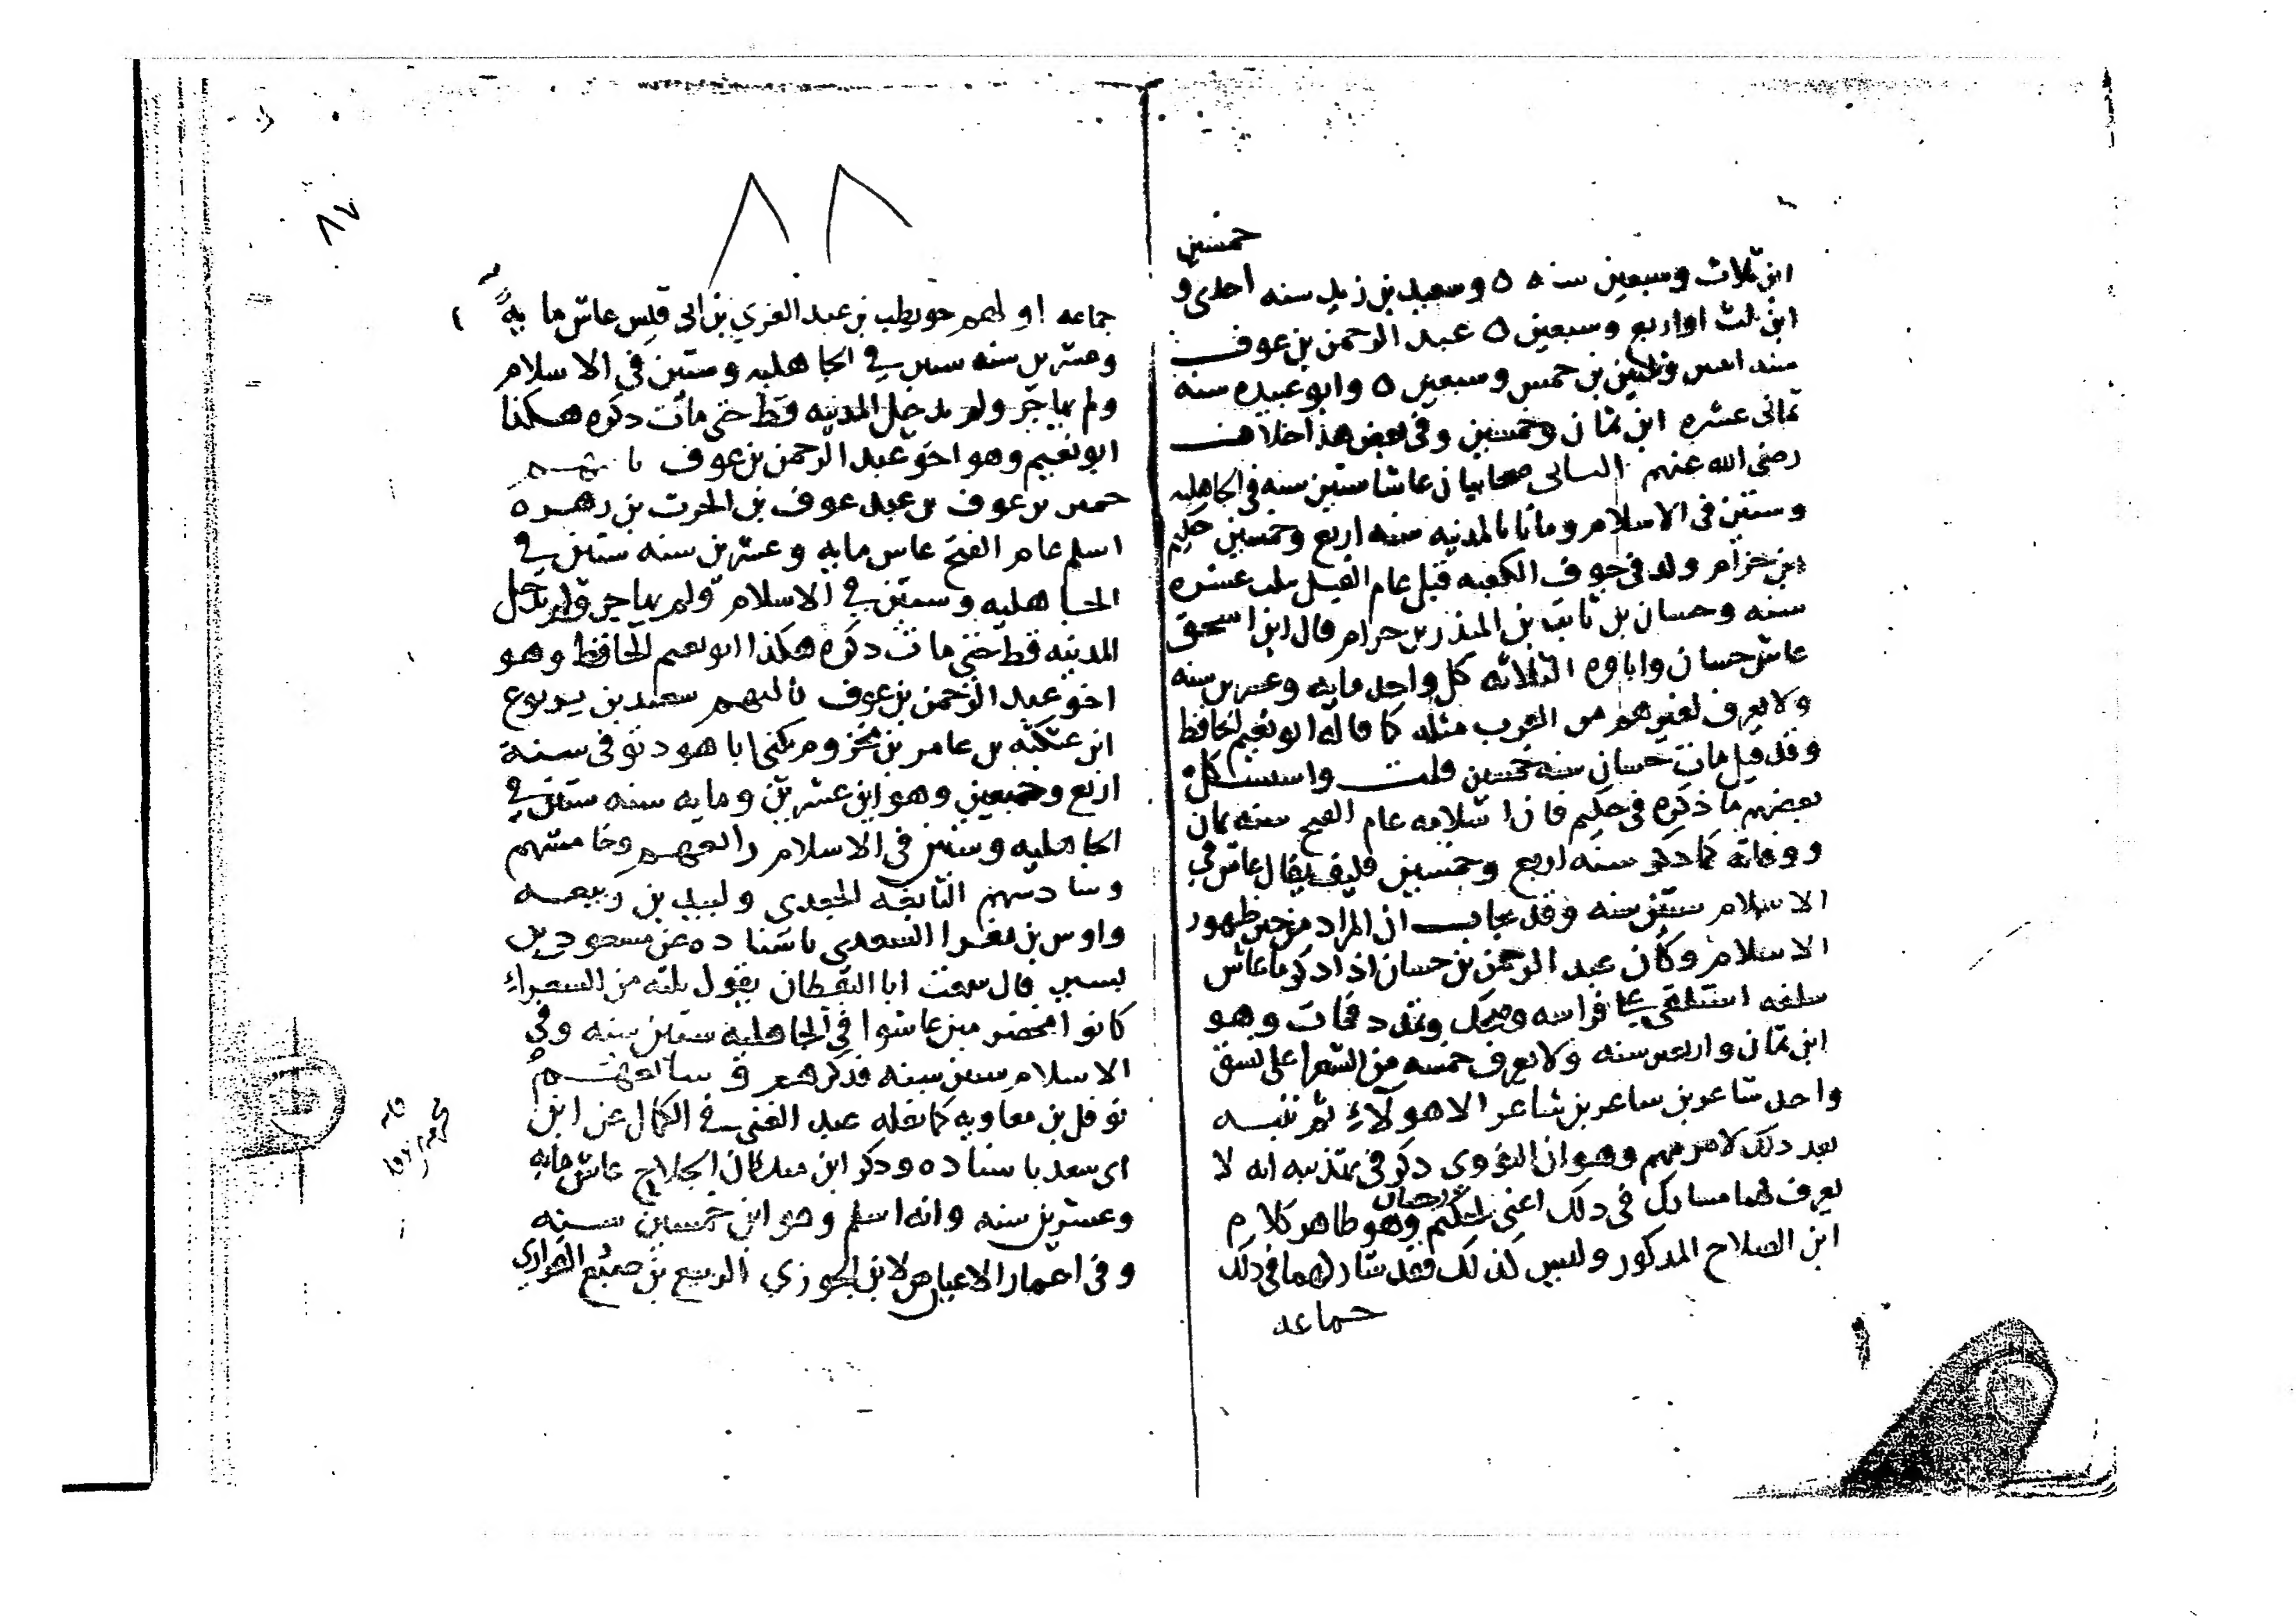 خمسين
ابن ثلاث وسبعين سنه ٥ وسعيد بن زيد سنه احدى و
ابن ثلث او اربع وسبعين ٥ عبد الرحمن بن عوف
سنه اثنين وثلثين بن خمس وسبعين ٥ وابو عبيده سنه
ثمانى عشره ابن ثمان وخمسين وفى بعض هذا خلاف
رضى الله عنهم الثانى صحابيان عاشا ستين سنه فى الجاهليه
وستين فى الاسلام وماتا بالمدينه سنه اربع وخمسين حكيم
ابن حزام ولد فى جوف الكعبه قبل عام الفيل بثلث عشره
سنه وحسان بن ثابت بن المنذر بن حرام قال ابن اسحق
عاش حسان واباوه الثلاثه كل واحد مايه وعشرين سنه
ولا يعرف لغيرهم من العرب مثله كما قاله ابو نعيم الحافظ
وقد قيل مات حسان سنه خمسين قلت واستشكل
بعضهم ما ذكره فى حكيم فان اسلامه عام الفتح سنه ثمان
ووفاته كما ذكر سنه اربع وخمسين فكيف يقال عاش فى
الاسلام ستين سنه وقد يجاب ان المراد من حين ظهور
الاسلام وكان عبد الرحمن بن حسان اذا ذكر ما عاش
سلفه استلقى على فراشه وضحك وتمدد فمات وهو
ابن ثمان واربعين سنه ولا يعرف خمسه من الشعرا على نسق
واحد شاعر بن شاعر بن شاعر الا هولاء ثم تنبه
بعد ذلك لامر مهم وهو ان النووى ذكر فى تهذيبه انه لا
يعرف لهما مشارك فى ذلك اعنى لحكيم وحسان وهو ظاهر كلام
ابن الصلاح المذكور وليس كذلك فقد شاركهما فى ذلك
جماعه
٨٨
٨٧
جماعه اولهم حويطب بن عبد العزي بن ابى قيس عاش مايه
وعشرين سنه ستين في الجاهليه وستين فى الاسلام
ولم يهاجر ولم يدخل المدينه قط حتى مات ذكره هكذا
ابو نعيم وهو اخو عبد الرحمن بن عوف ثانيهم
حمنن بن عوف بن عبد عوف بن الحرث بن زهره
اسلم عام الفتح عاش مايه وعشرين سنه ستين في
الجاهليه وستين في الاسلام ولم يهاجر ولم يدخل
المدينه قط حتى مات ذكره هكذا ابو نعيم الحافظ وهو
اخو عبد الرحمن بن عوف ثالثهم سعيد بن يربوع
ابن عنكثه بن عامر بن مخزوم يكنى ابا هود توفى سنة
اربع وخمسين وهو ابن عشرين ومايه سنه ستين في
الجاهليه وستين فى الاسلام رابعهم وخامسهم
وسادسهم النابغه الجعدى ولبيد بن ربيعه
واوس بن مغرا السعدى باسناده عن مسعود بن
بشير قال سمعت ابا اليقظان يقول ثلثه من الشعراء
كانوا مخضرمين عاشوا في الجاهليه ستين سنه وفى
الاسلام ستين سنه فذكرهم وسابعهم
نوفل بن معاويه كما نقله عبد الغنى في الكمال عن ابن
اى سعد باسناده وذكر ابن سلطان الجلاج عاش مايه
وعشرين سنه وانه اسلم وهو ابن خمسين سنه
وفى اعمار الاعيان لابن الجوزي الربيع بن ضبع الفزارى